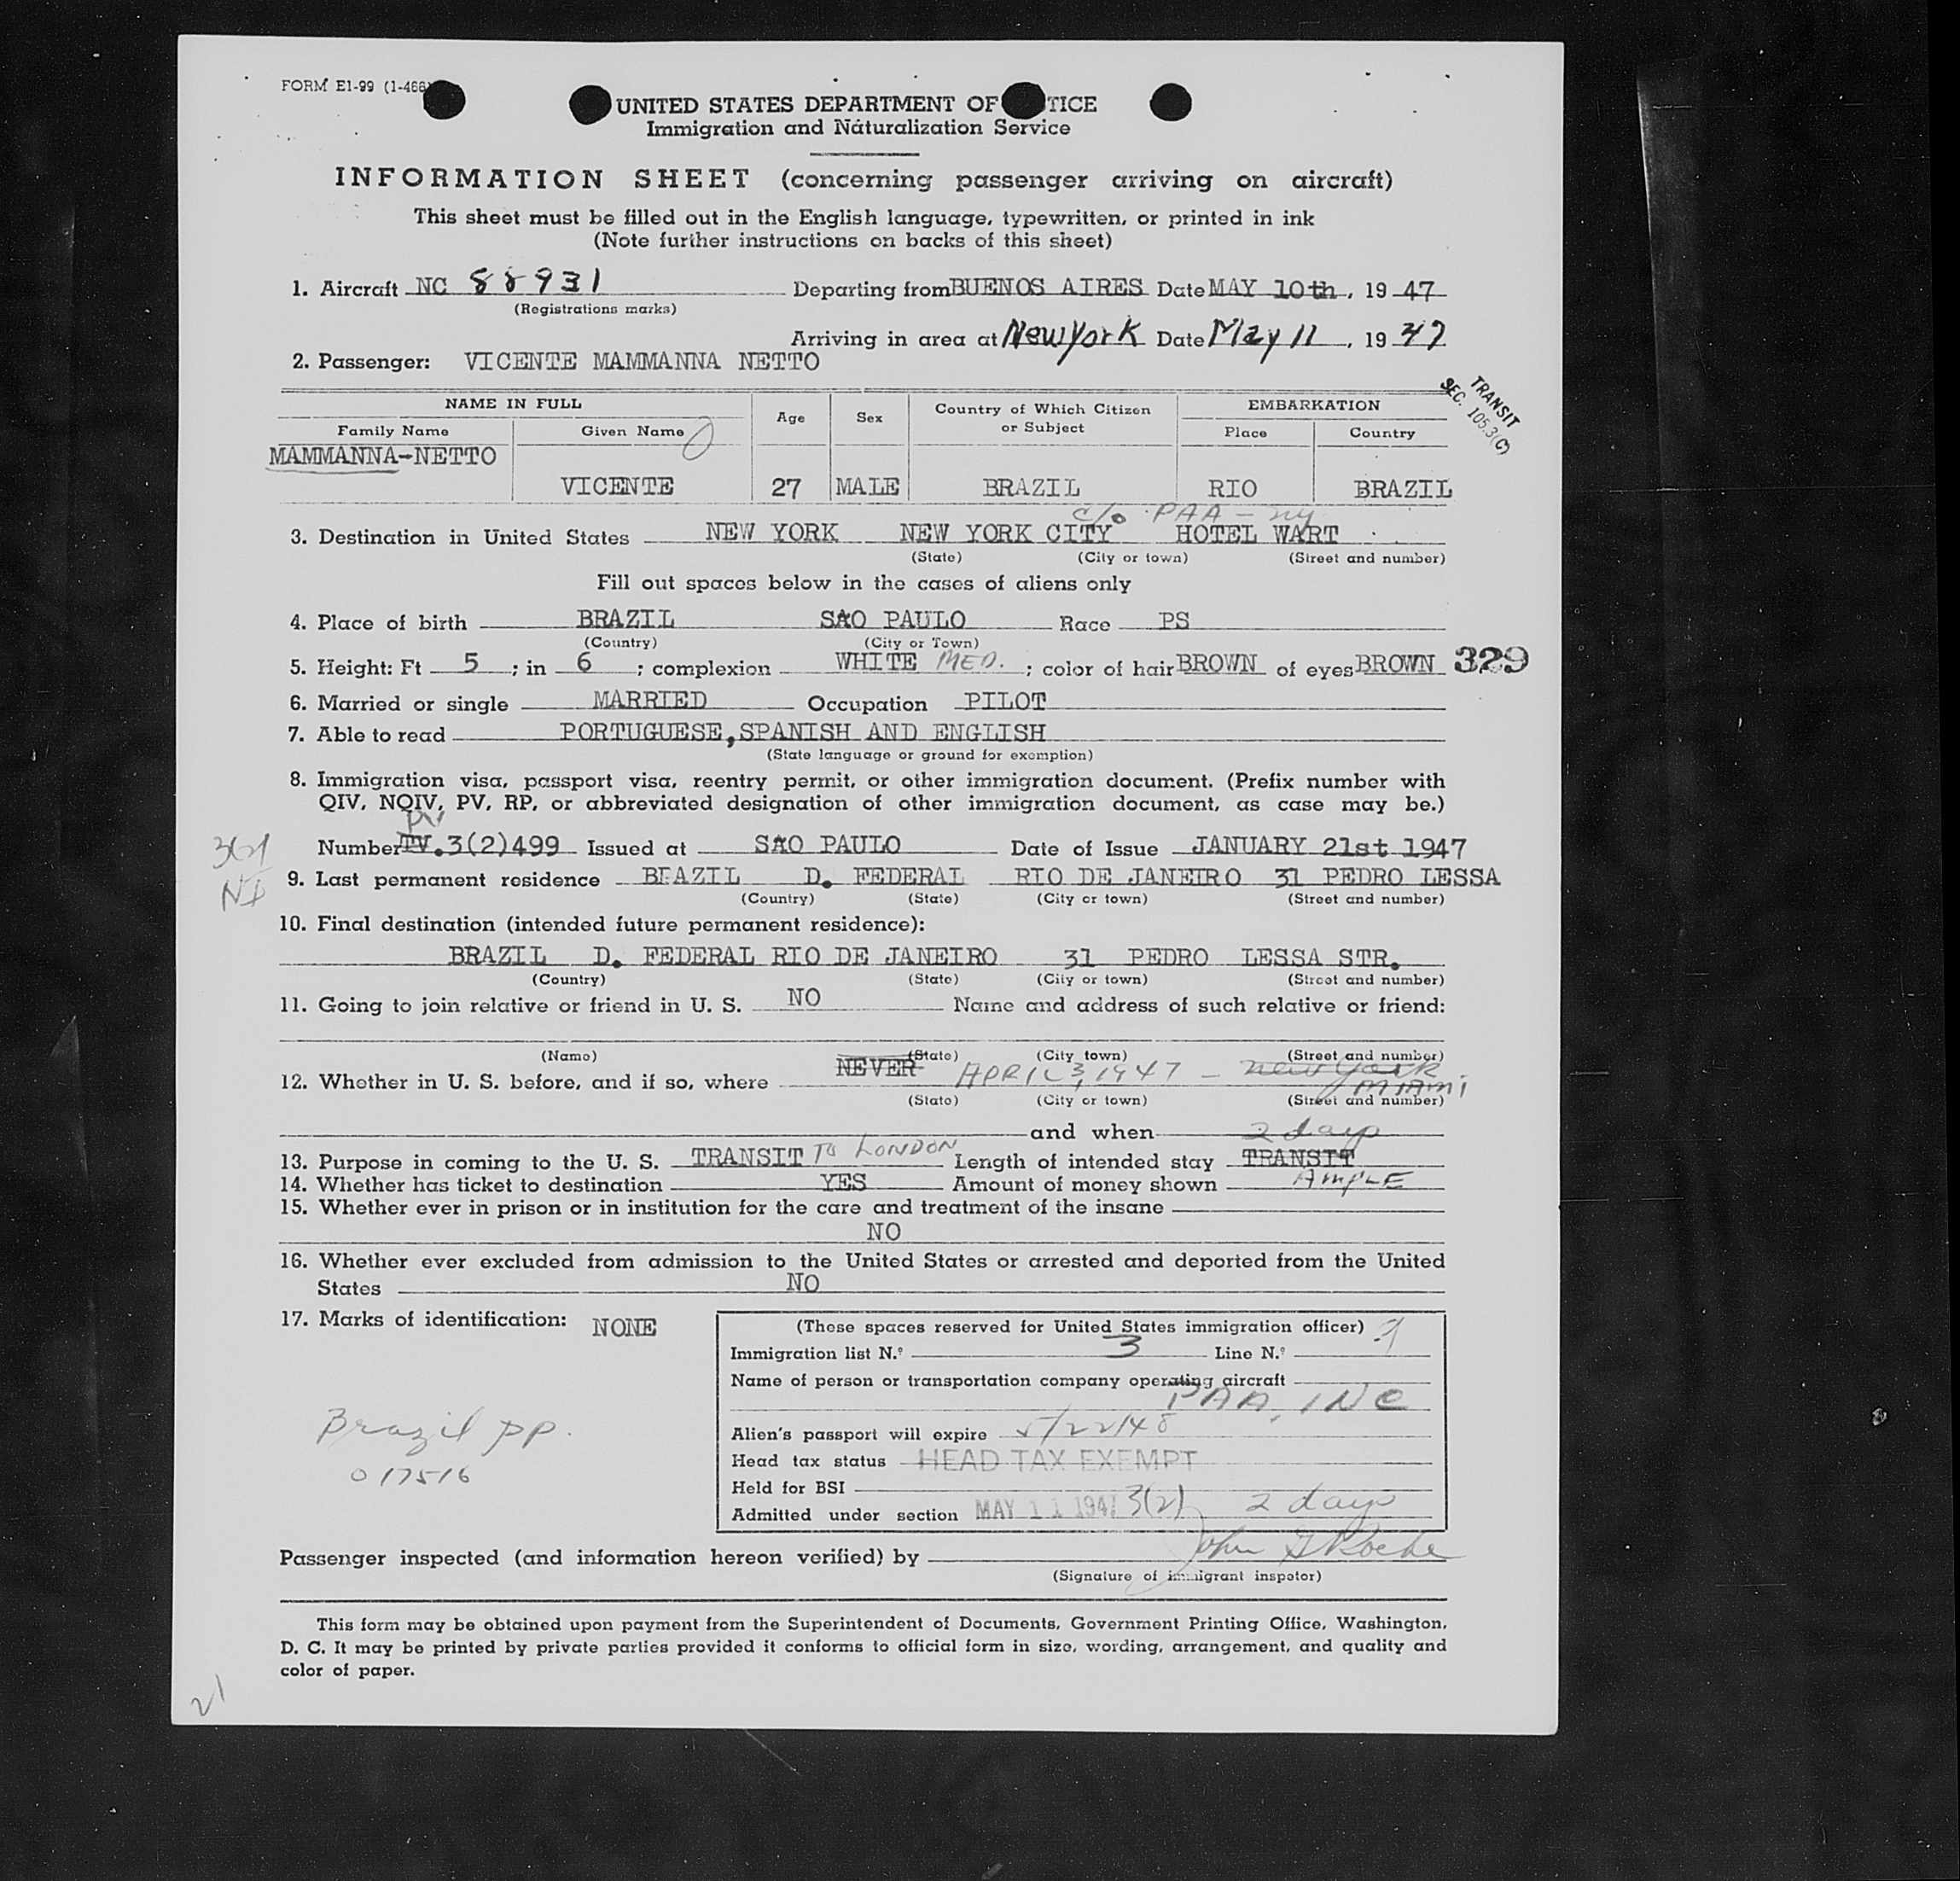 FORM E1-99 (1-466)
UNITED STATES DEPARTMENT OF TICE
Immigration and Naturalization Service
INFORMATION SHEET (concerning passenger arriving on aircraft)
This sheet must be filled out in the English language, typewritten, or printed in ink
(Note further instructions on backs of this sheet)
1. Aircraft NC 88931 Departing from BUENOS AIRES Date MAY 10th, 19 47
(Registrations marks)
Arriving in area at New York Date May 11, 19 47
2. Passenger: VICENTE MAMMANNA NETTO
TRANSIT
SEC. 105.3(C)
NAME IN FULL Age Sex Country of Which Citizen or Subject EMBARKATION
Family Name Given Name Place Country
MAMMANNA-NETTO
VICENTE 27 MALE BRAZIL RIO BRAZIL
c/o PAA - ny
3. Destination in United States NEW YORK NEW YORK CITY HOTEL WART
(State) (City or town) (Street and number)
Fill out spaces below in the cases of aliens only
4. Place of birth BRAZIL SAO PAULO Race PS
(Country) (City or Town)
5. Height: Ft 5 ; in 6 ; complexion WHITE MED. ; color of hair BROWN of eyes BROWN 329
6. Married or single MARRIED Occupation PILOT
7. Able to read PORTUGUESE, SPANISH AND ENGLISH
(State language or ground for exemption)
8. Immigration visa, passport visa, reentry permit, or other immigration document. (Prefix number with
QIV, NQIV, PV, RP, or abbreviated designation of other immigration document, as case may be.)
PV
Number TV.3(2)499 Issued at SAO PAULO Date of Issue JANUARY 21st 1947
9. Last permanent residence BRAZIL D. FEDERAL RIO DE JANEIRO 31 PEDRO LESSA
(Country) (State) (City or town) (Street and number)
10. Final destination (intended future permanent residence):
BRAZIL D. FEDERAL RIO DE JANEIRO 31 PEDRO LESSA STR.
(Country) (State) (City or town) (Street and number)
11. Going to join relative or friend in U. S. NO Name and address of such relative or friend:
(Name) (State) (City town) (Street and number)
12. Whether in U. S. before, and if so, where NEVER APRIL 3, 1947 - New York
MIAMI
(State) (City or town) (Street and number)
and when 2 days
13. Purpose in coming to the U. S. TRANSIT TO LONDON Length of intended stay TRANSIT
14. Whether has ticket to destination YES Amount of money shown AMPLE
15. Whether ever in prison or in institution for the care and treatment of the insane
NO
16. Whether ever excluded from admission to the United States or arrested and deported from the United
States NO
17. Marks of identification: NONE
(These spaces reserved for United States immigration officer)
Immigration list N.º 3 Line N.º
Name of person or transportation company operating aircraft
PAA, INC
Brazil pp.
017516
Alien's passport will expire 5/22/48
Head tax status HEAD TAX EXEMPT
Held for BSI
Admitted under section MAY 11 1947 3(2) 2 days
Passenger inspected (and information hereon verified) by John G Roche
(Signature of immigrant inspetor)
This form may be obtained upon payment from the Superintendent of Documents, Government Printing Office, Washington,
D. C. It may be printed by private parties provided it conforms to official form in size, wording, arrangement, and quality and
color of paper.
21